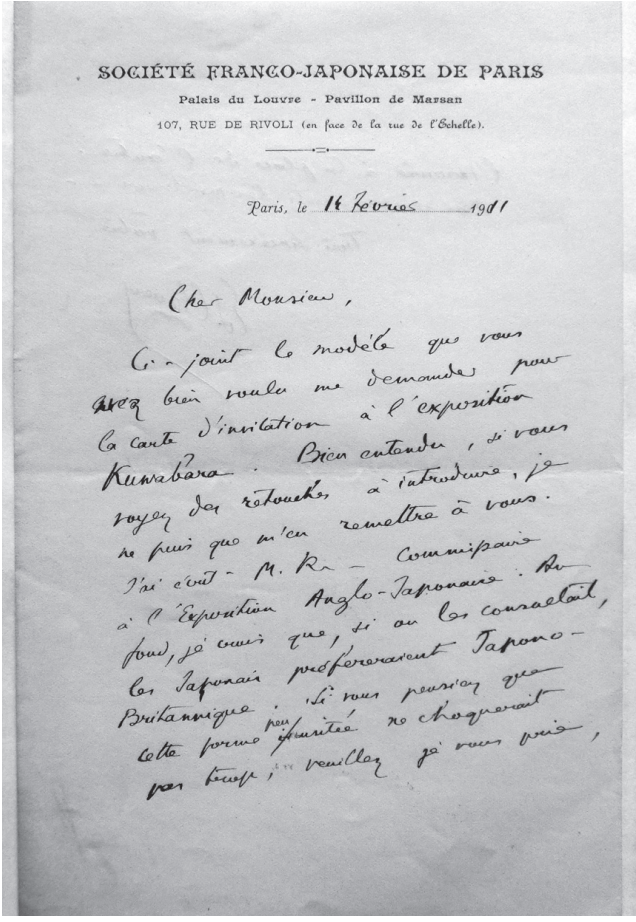 SOCIÉTÉ FRANCO-JAPONAISE DE PARIS
Palais du Louvre - Pavillon de Marsan
107, RUE DE RIVOLI (en face de la rue de l'Echelle).
Paris, le 14 Février 1911
Cher Monsieur,
Ci-joint le modèle que vous
avez bien voulu me demander pour
la carte d'invitation à l'exposition
Kuwabara. Bien entendu, si vous
voyez des retouches à introduire, je
ne puis que m'en remettre à vous.
J'ai écrit - M. K. - Commissaire
à l'Exposition Anglo-Japonaise. Au
fond, je crois que, si on les consultait,
les Japonais préféreraient Japono-
Britannique. Si vous pensiez que
cette forme peu usitée ne choquerait
pas trop, veuillez je vous prie,